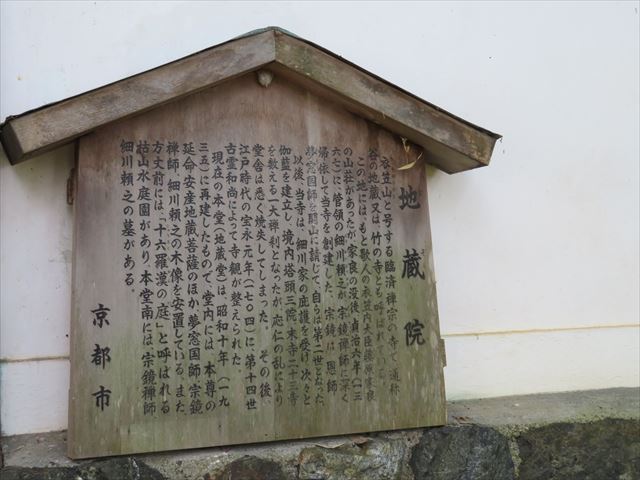 地蔵院
衣笠山と号する臨済禅宗の寺で通称
谷の地蔵又は竹の寺とも呼ばれている。
この地には、もと歌人の衣笠内大臣藤原家良
の山荘があったが、家良の没後、貞治六年(一三
六七)に管領の細川頼之が、宗鏡禅師に深く
帰依して当寺を創建した。宗鏡は、恩師
夢窓国師を開山に請じて、自らは第二世となった。
以後、当寺は、細川家の庇護を受け、次々と
伽藍を建立し、境内塔頭三院、末寺二十三寺
を数える一大禅刹となったが、応仁の乱により
堂舎は悉く焼失してしまった。その後、
江戸時代の宝永元年(一七〇四)に第十四世
古霊和尚によって寺観が整えられた。
現在の本堂(地蔵堂)は、昭和十年(一九
三五)に再建したもので、堂内には、本尊の
延命安産地蔵菩薩のほか夢窓国師、宗鏡
禅師、細川頼之の木像を安置している。また、
方丈前には、「十六羅漢の庭」と呼ばれる
枯山水庭園があり、本堂南には、宗鏡禅師
細川頼之の墓がある。
京都市